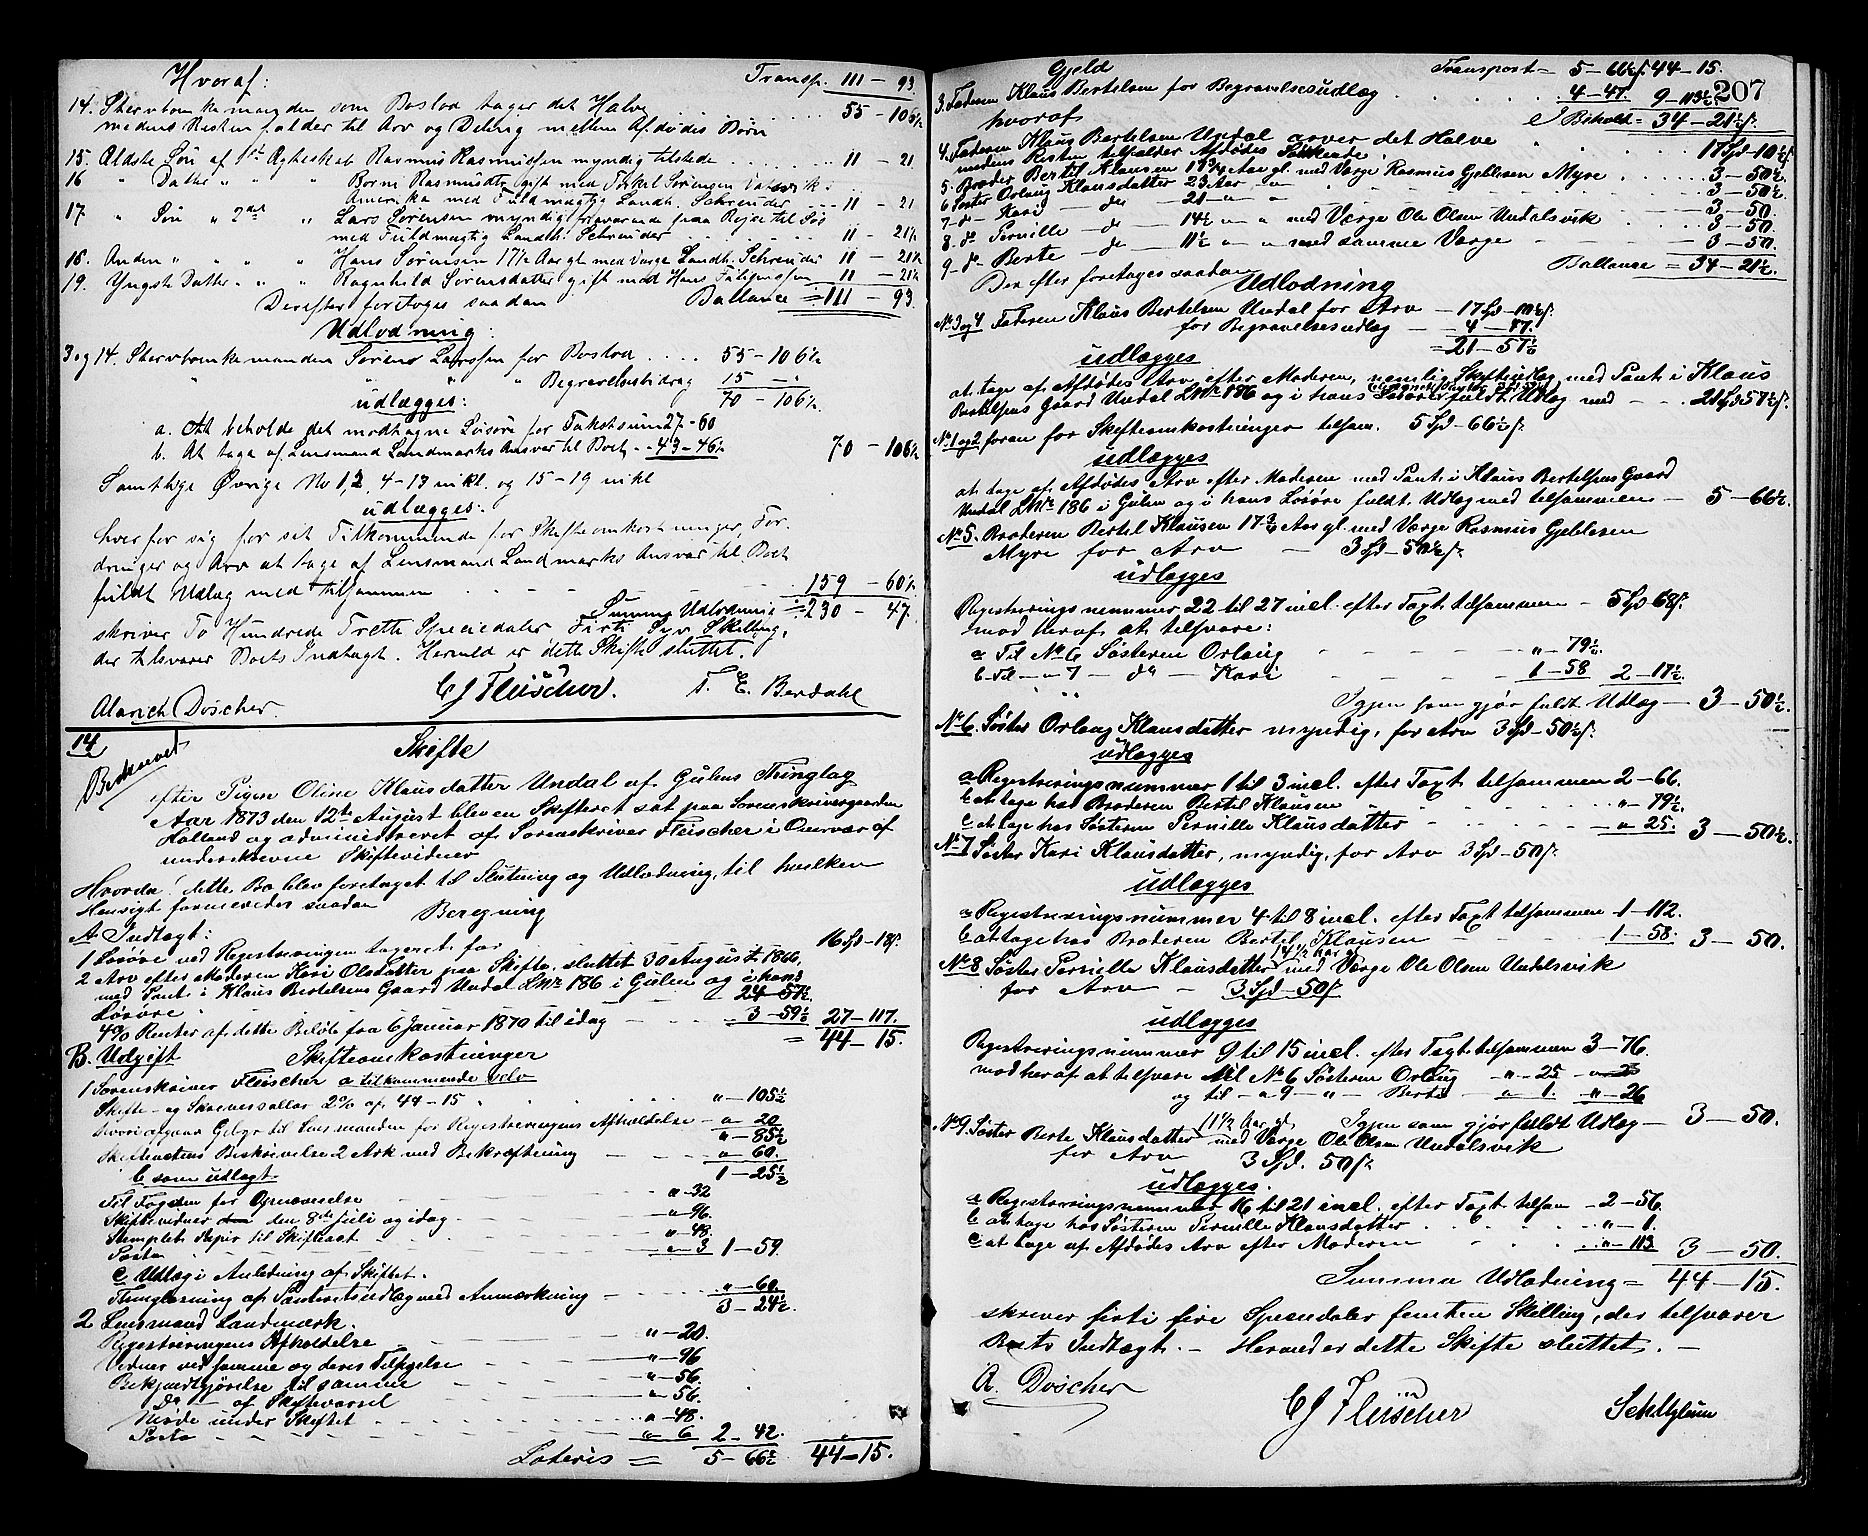 Hvoraf: Transp. 111 – 93.
14. Stervboenkemanden som Boslod tager det Halve . . . 55 – 106½
medens Resten falder til Arv og Deling mellem Afdødes Børn
15. Ældste Søn af 1ste Ægteskab Rasmus Rasmussen myndig tilstede . . . 11 – 21
16 " Datter " " " Borni Rasmusdtr gift med Torkel Sørensen
Amerika med Fuldmægtig Landh. Schreuder . . . 11 – 21
17 " Søn " 2det " Lars Sørensen myndig fraværende paa Reise til Søs
med Fuldmægtig Landh. Schreuder . . . 11 – 21½
18. Anden " " " " Hans Sørensen 17½ Aar gl. med Værge Landh. Schreuder 11 – 21½
19. Yngste Datter " " " Ragnhild Sørensdatter gift med Hans 11 – 21½
Derefter foretoges saadan Ballance = 111 – 93.
Udlodning:
3 og 14. Stervboenkemanden Søren Larssen for Boslod . . . . 55 – 106½
" " " " Begravelsesbidrag 15 – "
udlægges: 70 – 106½
a. At beholde det modtagne Løsøre for Takstsum 27 – 60
b. At tage af Lensmand Landmarks Ansvar til Boet – 43 – 46½ 70 – 106½
Samtlige Øvrige No 1, 2, 4–13 inkl. og 15–19 inkl
udlægges:
hver for sig for sit Tilkommende for Skifteomkostninger, For-
dringer og Arv at tage af Lensmand Landmarks Ansvar til Boet
fuldt Udlæg med tilsammen . . . 159 – 60½
Summa Udlodning = 230 – 47.
skriver To Hundrede Tretti Speciedaler Firti Syv Skilling,
der tilsvarer Boets Indtægt. Hermed er dette Skifte sluttet.
Alarich Döscher. CJ Fleischer. T. E. Berdahl
14
Beskrevet
Skifte
efter Pigen Oline Klausdatter Undal af Gulens Thinglag
Aar 1873 den 12te August blev en Skifteret sat paa Sorenskrivergaarden
Holland og administreret af Sorenskriver Fleischer i Overvær af
underskrevne Skiftevidner
Hvorda! dette Bo blev foretaget til Slutning og Udlodning, til hvilken
Henseigt formeredes saadan Beregning
A. Indtægt:
1 Løsøre ved Registreringen tageret for 16 Spd – 18ß.
2 Arv efter Moderen Kari Olsdatter paa Skifte, sluttet 30 August 1866,
med Pant i Klaus Bertelsens Gaard Undal LNr 186 i Gulen og i hans
Løsøre " 24 – 57½.
4% Renter af dette Beløb fra 6 Januar 1870 til idag 3 – 59½ 27 – 117.
= 44 – 15.
B. Udgift Skifteomkostninger
1 Sorenskriver Fleischer a tilkommende selv
Skifte- og Skrivessallar 2% af 44 – 15 " – 105½
hvori afgaar Gebyr til Lensmanden for Registreringens Afholdelse – " – 20
" – 85½
Skifteaktens Beskrivelse 2 Ark med Bekræftning " – 60.
b som udlagt 1 – 25½
Til Fogden for Opnævnelse " – 32
Skiftevidner den 8de Juli og idag " – 96.
Stemplet Papir til Skifteact " – 48.
Porto " – 3 1 – 59.
c Udlæg i Anledning af Skiftet.
Thinglæsning af Panteretsudlæg med Anmærkning " – 60.
3 – 24½.
2 Lensmand Landmærk.
Registreringens Afholdelse " – 20.
Vidner ved samme og deres Tilsigelse " – 96
Bekjendtgjørelse til samme " – 56.
Do – af Skiftevarsel " – 56.
Møde under Skiftet " – 48.
Porto " – 6 2 – 42.
Lateris = 5 – 66½ 44 – 15.
Gjeld Transport = 5 – 66½ß. 44 – 15.
207
3. Faderen Klaus Bertelsen for Begravelsesudlæg . . . 4 – 47. 9 – 113½
hvoraf Behold = 34 – 21½ß.
4. Faderen Klaus Bertelsen Undal arver det Halve 17 Spd – 10½ß
medens Resten tilfalder Afdødes Søskende:
5. Broder Bertil Klausen 17¾ Aar gl. med Værge Rasmus Gjeblesen Myre . . . 3 – 50½.
6 Søster Orlaug Klausdatter 23 Aar " 3 – 50½.
7 do – Kari – do – 21 – " 3 – 50.
8. do Pernille – do – 14½ " – " med Værge Ole Olsen Undalsvik 3 – 50.
9 do – Berte – do – 11½ " – " med samme Værge 3 – 50.
Ballance = 34 – 21½.
Derefter foretages saadan Udlodning
No 3 og 4 Faderen Klaus Bertelsen Undal for Arv – 17 Spd – 10½ß.
for Begravelsesudlæg – 4 – 47.
= 21 – 57½
udlægges
at tage af Afdødes Arv efter Moderen, nemlig Skifteudlæg med Pant i Klaus
Bertelsens Gaard Undal LNr 186 og i hans Løsøre fuldt Udlæg med – – 21 Spd 57½ß.
No 1 og 2 foran for Skifteomkostninger tilsam. 5 Spd – 66½ß.
udlægges
at tage af Afdødes Arv efter Moderen med Pant i Klaus Bertelsens Gaard
Undal LNr 186 i Gulen og i hans Løsøre fuldt Udlæg med tilsammen – 5 – 66½.
No 5. Broderen Bertel Klausen 17¾ Aar gl. med Værge Rasmus Gjeblesen
Myre for Arv – 3 Spd – 50½ß.
udlægges
Registreringsnummer 22 til 27 incl. efter Taxt tilsammen – 5 Spd 68ß.
mod heraf at tilsvare:
a Til No 6 Søsteren Orlaug " – 79½.
b Til – " – 7 – do – Kari 1 – 58 2 – 17½.
Igjen som gjør fuldt Udlæg – 3 – 50½.
No 6. Søster Orlaug Klausdatter myndig, for Arv 3 Spd – 50½ß.
udlægges
a Registreringsnummer 1 til 3 incl. efter Taxt tilsammen 2 – 66.
b at tage hos Broderen Bertil Klausen " – 79½.
c at tage hos Søsteren Pernille Klausdatter " – 25. 3 – 50½.
No 7 Søster Kari Klausdatter, myndig, for Arv 3 Spd – 50ß.
udlægges
a Registreringsnummer 4 til 8 incl. efter Taxt tilsammen 1 – 112.
b at tage hos Broderen Bertel Klausen 1 – 58. 3 – 50.
14½ Aar gl.
No 8 Søster Pernille Klausdatter med Værge Ole Olsen Undalsvik
for Arv – 3 Spd – 50ß
udlægges
Registreringsnummer 9 til 15 incl. efter Taxt tilsammen 3 – 76.
mod heraf at tilsvare til No 6 Søsteren Orlaug " – 25
og til – " 9 – " – Berte – " – 1. " – 26
Igjen som gjør fuldt Udlæg – 3 – 50.
11½ Aar gl.
No 9. Søster Berte Klausdatter med Værge Ole Olsen Undalsvik
for Arv 3 Spd. 50ß
udlægges.
a Registreringsnummer 16 til 21 incl. efter Taxt tilsam – 2 – 56.
b at tage hos Søsteren Pernille Klausdatter " – 1.
c at tage af Afdødes Arv efter Moderen " – 113 3 – 50.
Summa Udlodning = 44 – 15.
skriver firti fire Speciedaler femten Skilling, der tilsvarer
Boets Indtægt. – Hermed er dette Skifte sluttet. –
A. Döscher CJ Fleischer